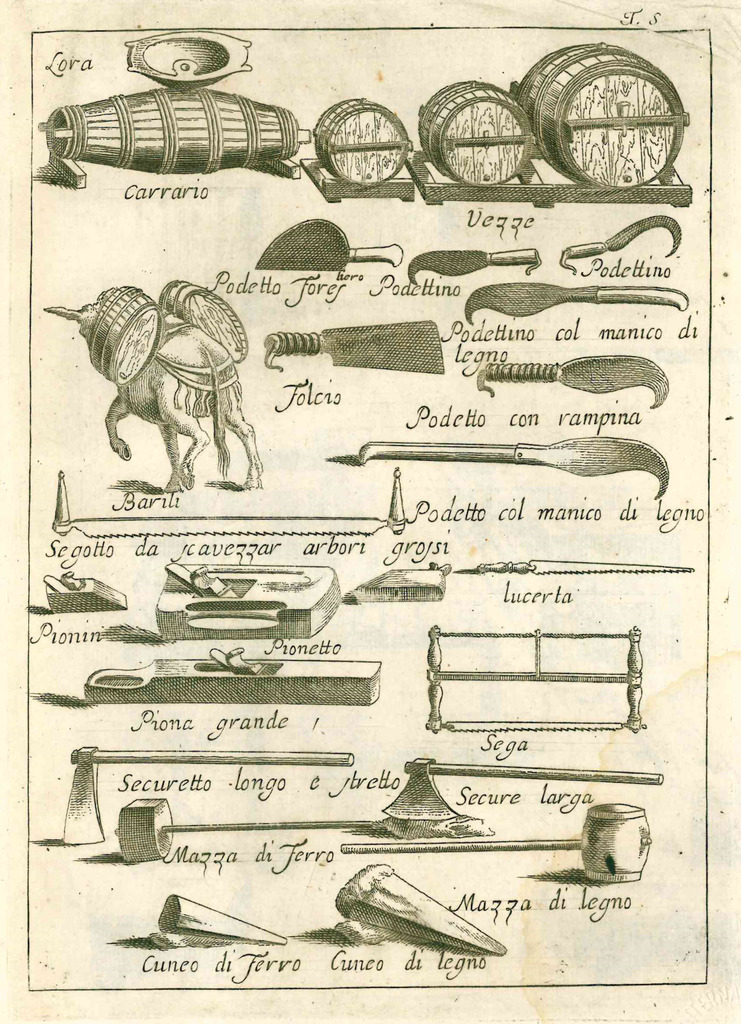 T. 5
Lora
Carrario
Vezze
Podetto Forestiero
Podettino
Podettino
Podettino col manico di
legno
Folcio
Podetto con rampina
Barili
Podetto col manico di legno
Segotto da scavezzar arbori grossi
lucerta
Pionin
Pionetto
Piona grande
Sega
Securetto longo e stretto
Secure larga
Mazza di Ferro
Mazza di legno
Cuneo di Ferro
Cuneo di legno